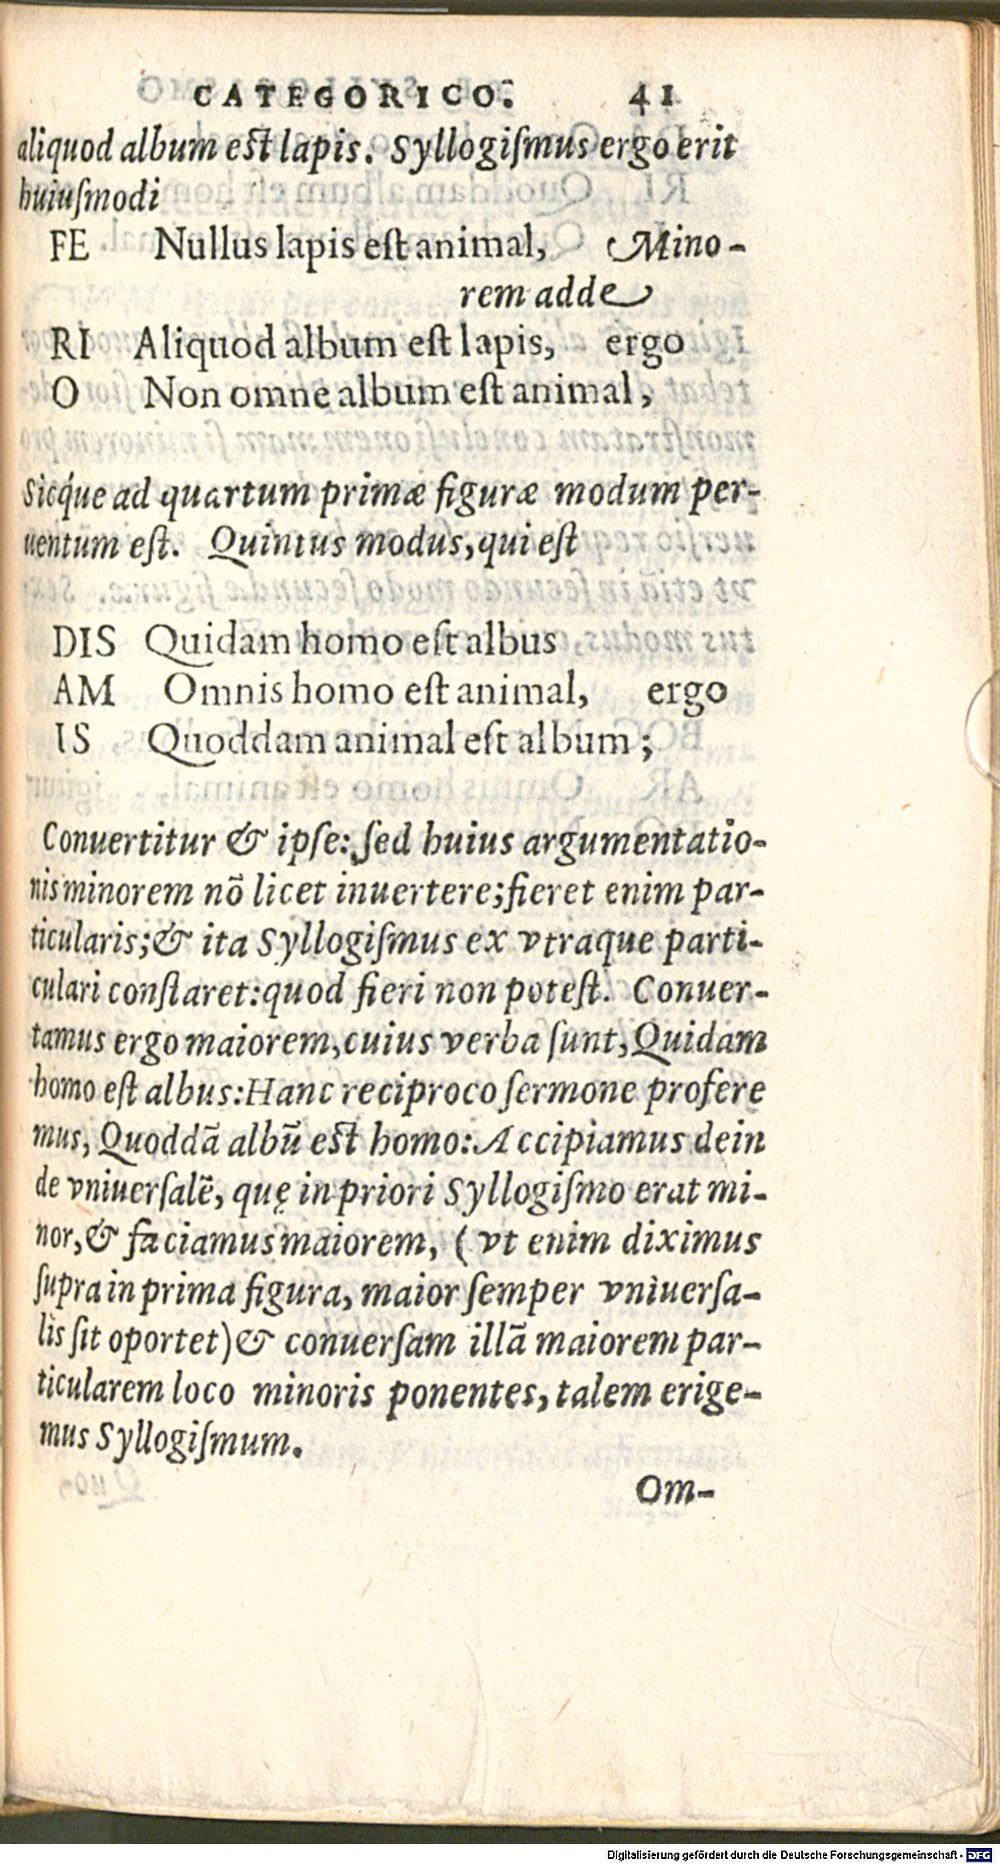 CATEGORICO. 41
aliquod album est lapis. Syllogiſmus ergo erit
huiuſmodi
FE Nullus lapis eſt animal, Mino-
rem adde
RI Aliquod album eſt lapis, ergo
O Non omne album eſt animal,
Sicq́ue ad quartum primæ figuræ modum per-
uentum eſt. Quintus modus, qui eſt
DIS Quidam homo eſt albus
AM Omnis homo eſt animal, ergo
IS Quoddam animal eſt album;
Conuertitur & ipſe: ſed huius argumentatio-
nis minorem nõ licet inuertere; fieret enim par-
ticularis; & ita Syllogiſmus ex vtraque parti-
culari conſtaret: quod fieri non poteſt. Conuer-
tamus ergo maiorem, cuius verba ſunt, Quidam
homo eſt albus: Hanc reciproco ſermone profere
mus, Quoddã albũ eſt homo: Accipiamus dein
de vniuerſalẽ, quę in priori Syllogiſmo erat mi-
nor, & faciamus maiorem, (vt enim diximus
ſupra in prima figura, maior ſemper vniuerſa-
lis ſit oportet) & conuerſam illã maiorem par-
ticularem loco minoris ponentes, talem erige-
mus Syllogiſmum.
Om-
Digitalisierung gefördert durch die Deutsche Forschungsgemeinschaft - DFG